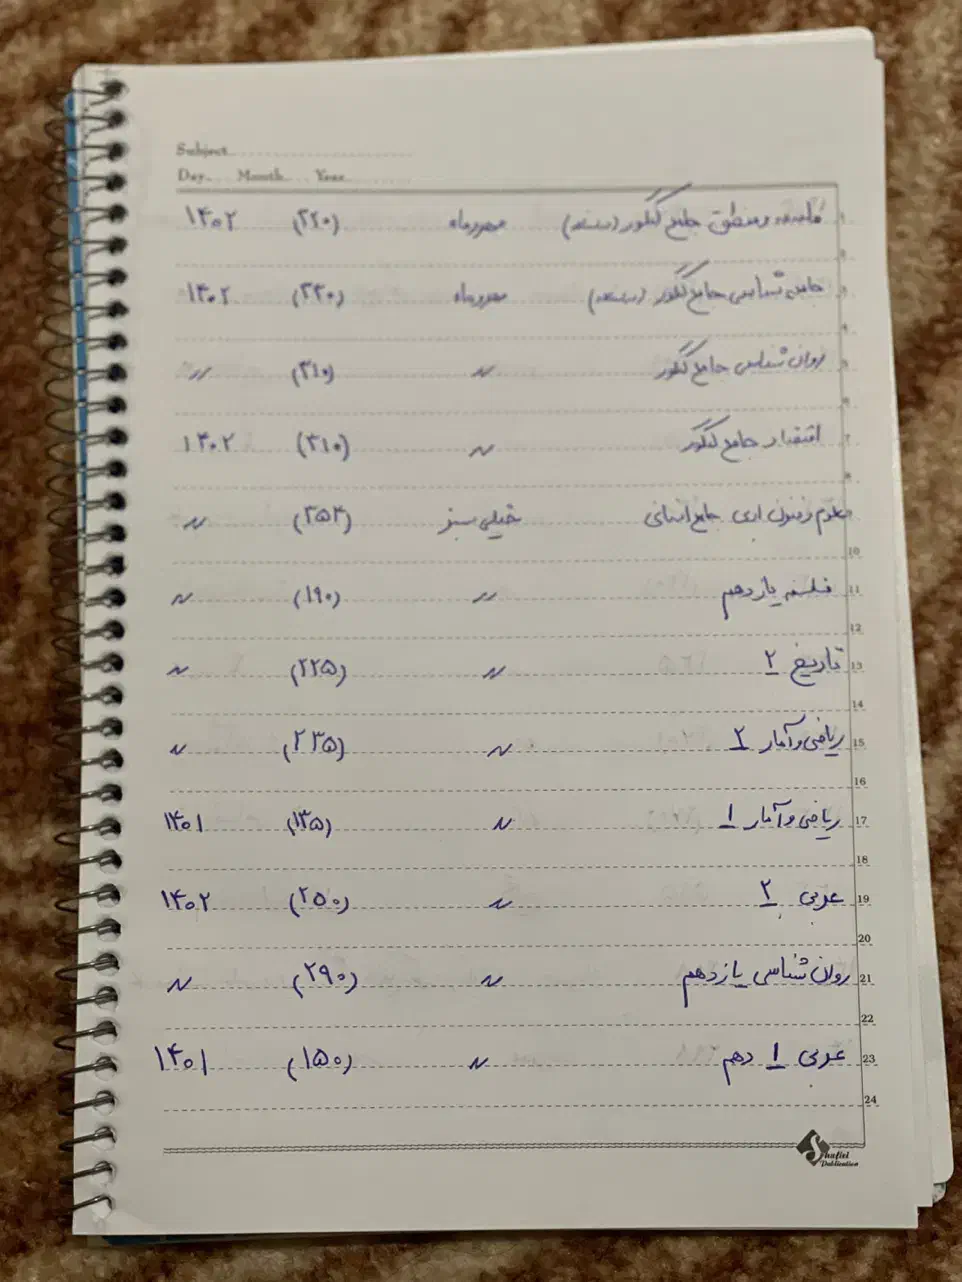 Subject
Day Month Year
فلسفه و منطق جامع کنکور مهروماه (۲۲۰) ۱۴۰۲
جامعه شناسی جامع کنکور مهروماه (۲۳۰) ۱۴۰۲
روان شناسی جامع کنکور 〃 (۳۱۰) 〃
اقتصاد جامع کنکور 〃 (۳۱۰) ۱۴۰۲
علوم و فنون ادبی جامع انسانی خیلی سبز (۲۵۴) 〃
فلسفه یازدهم 〃 (۱۹۰) 〃
تاریخ ۲ 〃 (۲۲۵) 〃
ریاضی و آمار ۲ 〃 (۲۳۵) 〃
ریاضی و آمار ۱ 〃 (۱۳۵) ۱۴۰۱
عربی ۲ 〃 (۲۵۰) ۱۴۰۲
روان شناسی یازدهم 〃 (۲۹۰) 〃
عربی ۱ دهم 〃 (۱۵۰) ۱۴۰۱
Shafiei
Publication